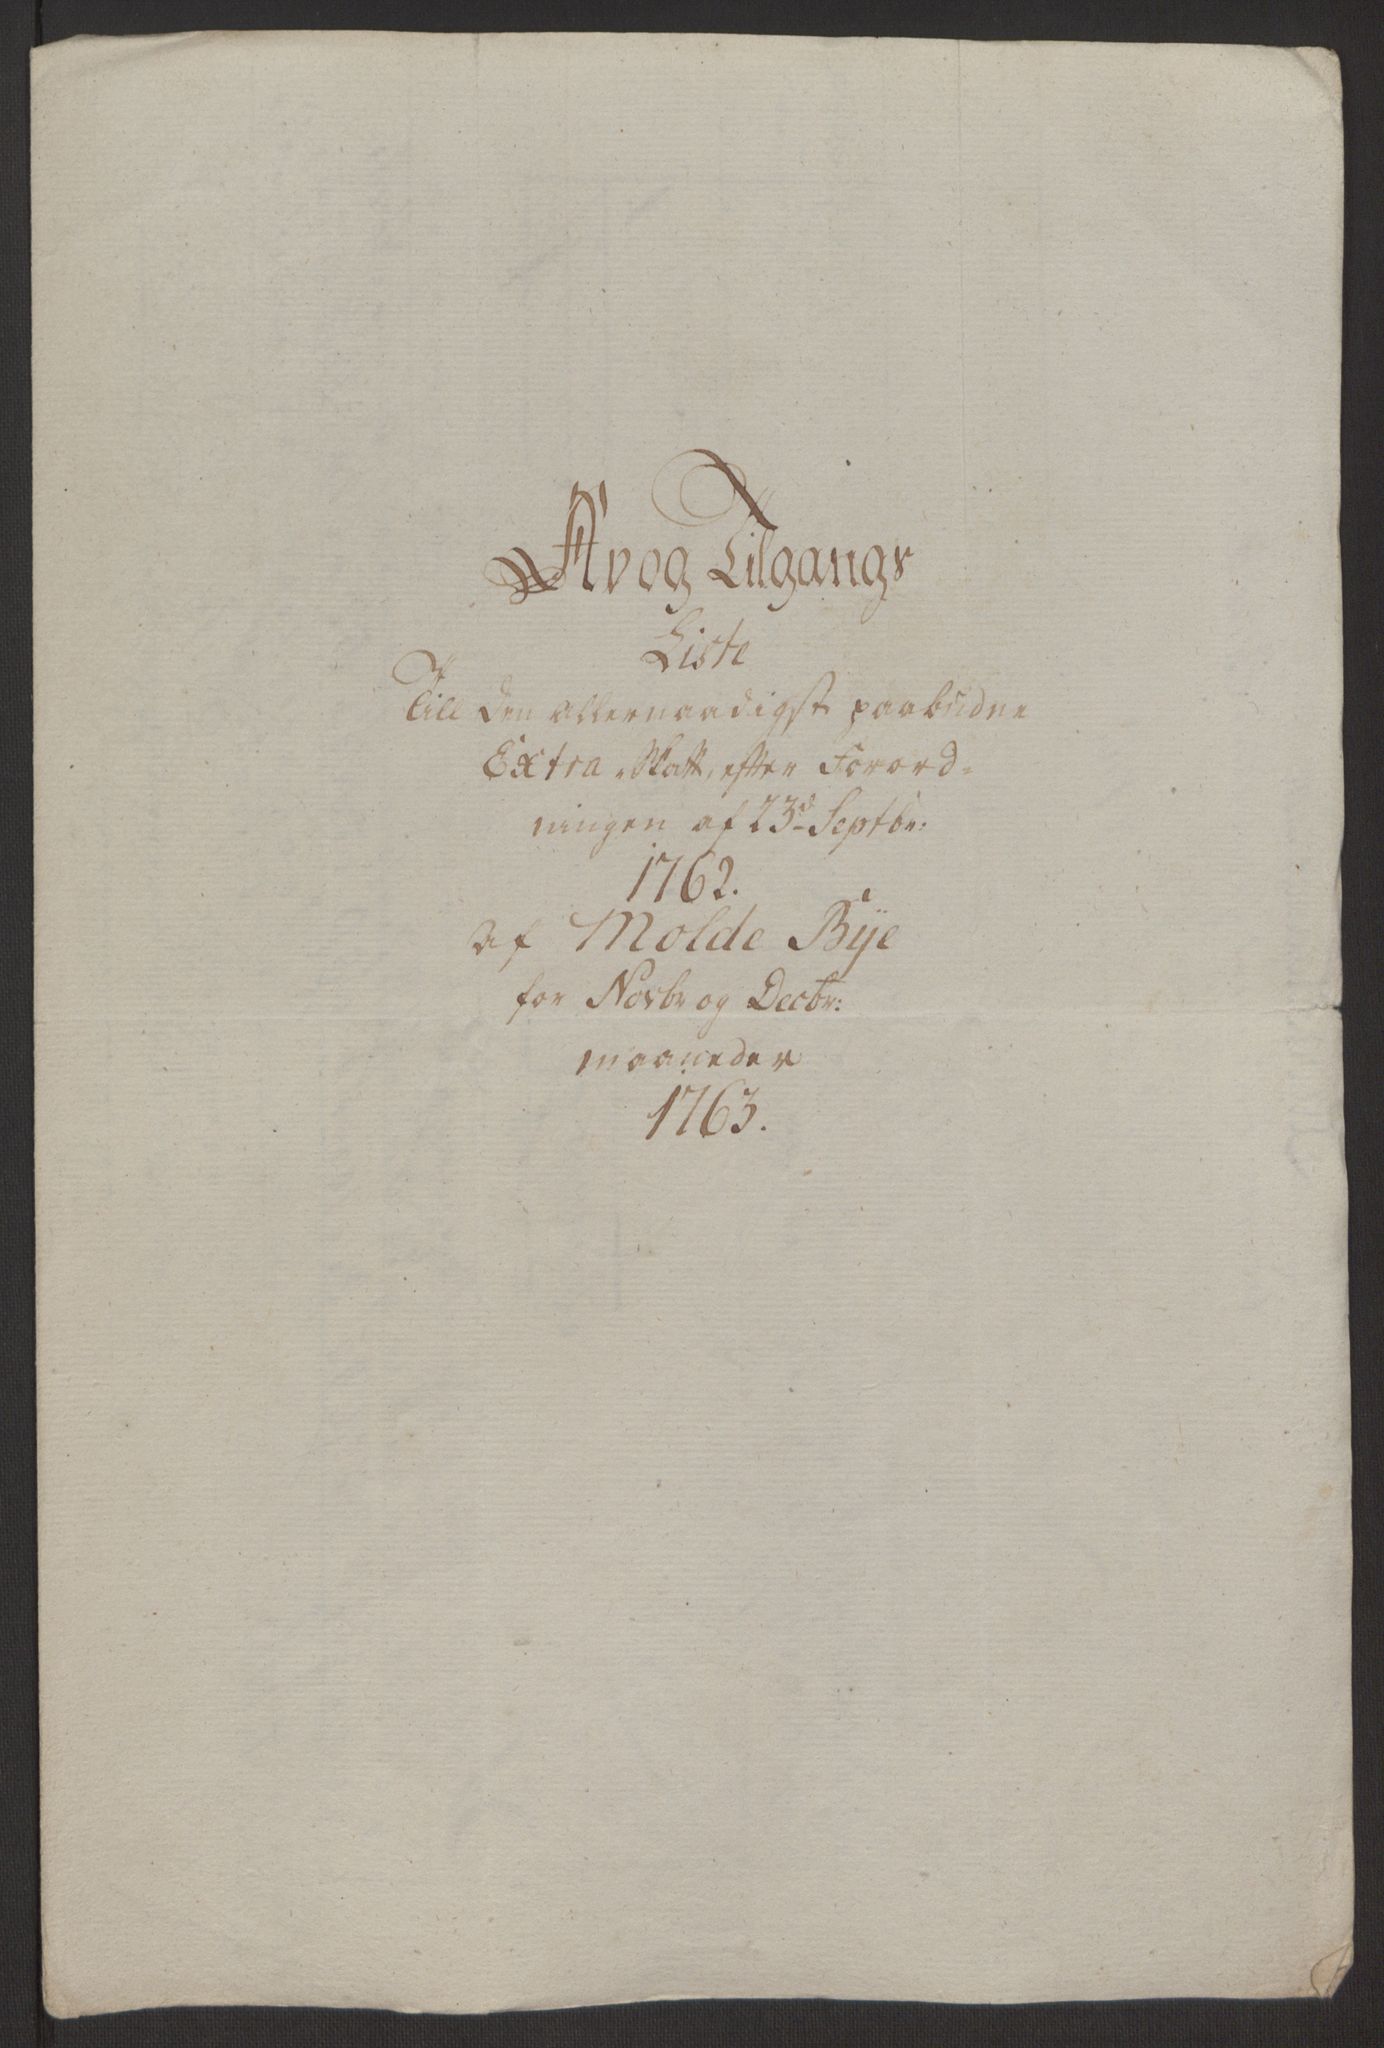 Av og Tilgangs
Liste
Till den allernaadigst paabudne
Extra Skatt, efter Forord-
ningen af 23d Septbr:
1762.
af Molde Bÿe
for Novbr og Decbr:
maaneder
1763.